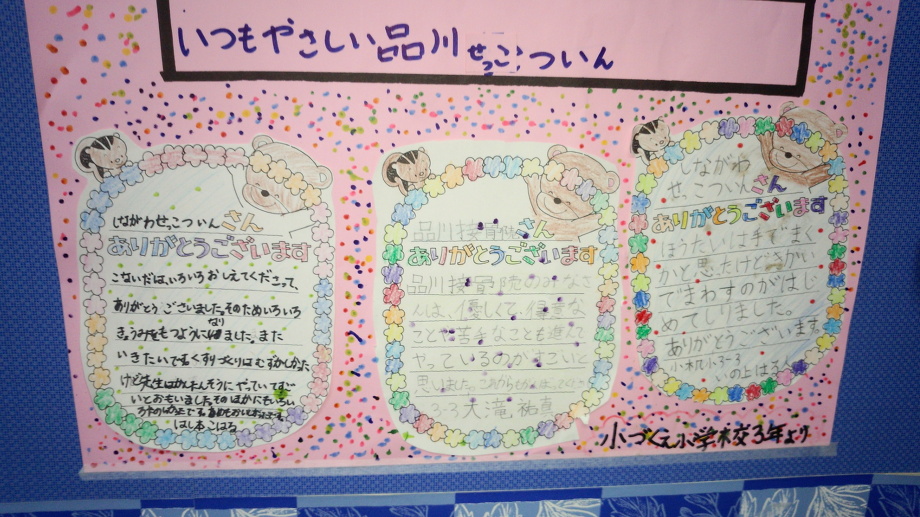 いつもやさしい品川せっこついん
しながわせっこついんさん
ありがとうございます
こないだは、いろいろおしえてくださって、
ありがとうございました。そのためいろいろ
きょうみをもつようになりました。また
いきたいです。くすりづくりはむずかしかった
けど先生はかんたんそうにやっていてすご
いとおもいました。そのほかにもいろい
はしもとこはる
品川接骨院さん
ありがとうございます
品川接骨院のみな
んは、優しくて、得意な
ことや苦手なことも進んで
やっているのがすごいと
思いました。これからも
3-3大滝
しながわ
せっこついんさん
ありがとうございます
ほうたいりは手でまく
かと思ったけどきかい
でまわすのがはじ
めてしりました。
ありがとうございます
小机小3-3
いの上はるん
小づくえ小学校3年より